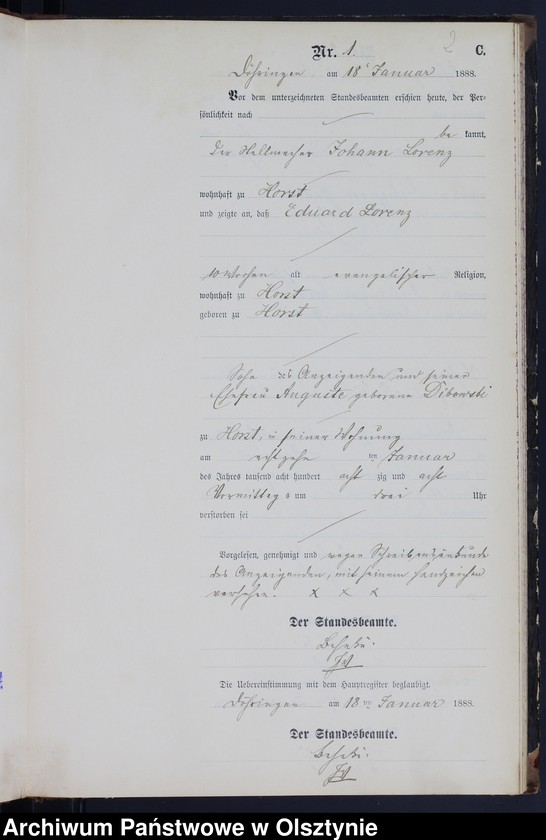 Nr. 1. 2 C.
Döhringen am 18' Januar 1888.
Vor dem unterzeichneten Standesbeamten erschien heute, der Per-
sönlichkeit nach
be kannt,
der Stellmacher Johann Lorenz
wohnhaft zu Horst
und zeigte an, daß Eduard Lorenz
10 Wochen alt evangelischer Religion,
wohnhaft zu Horst
geboren zu Horst
Sohn des Anzeigenden und seiner
Ehefrau Auguste geborene Dibowski
zu Horst, in seiner Wohnung
am achtzehn ten Januar
des Jahres tausend acht hundert acht zig und acht
Vormittags um drei Uhr
verstorben sei
Vorgelesen, genehmigt und wegen Schreibensunkunde
des Anzeigenden, mit seinem Handzeichen
versehen. x x x
Der Standesbeamte.
Die Uebereinstimmung mit dem Hauptregister beglaubigt.
Döhringen am 18 ten Januar 1888.
Der Standesbeamte.
Archiwum Państwowe w Olsztynie